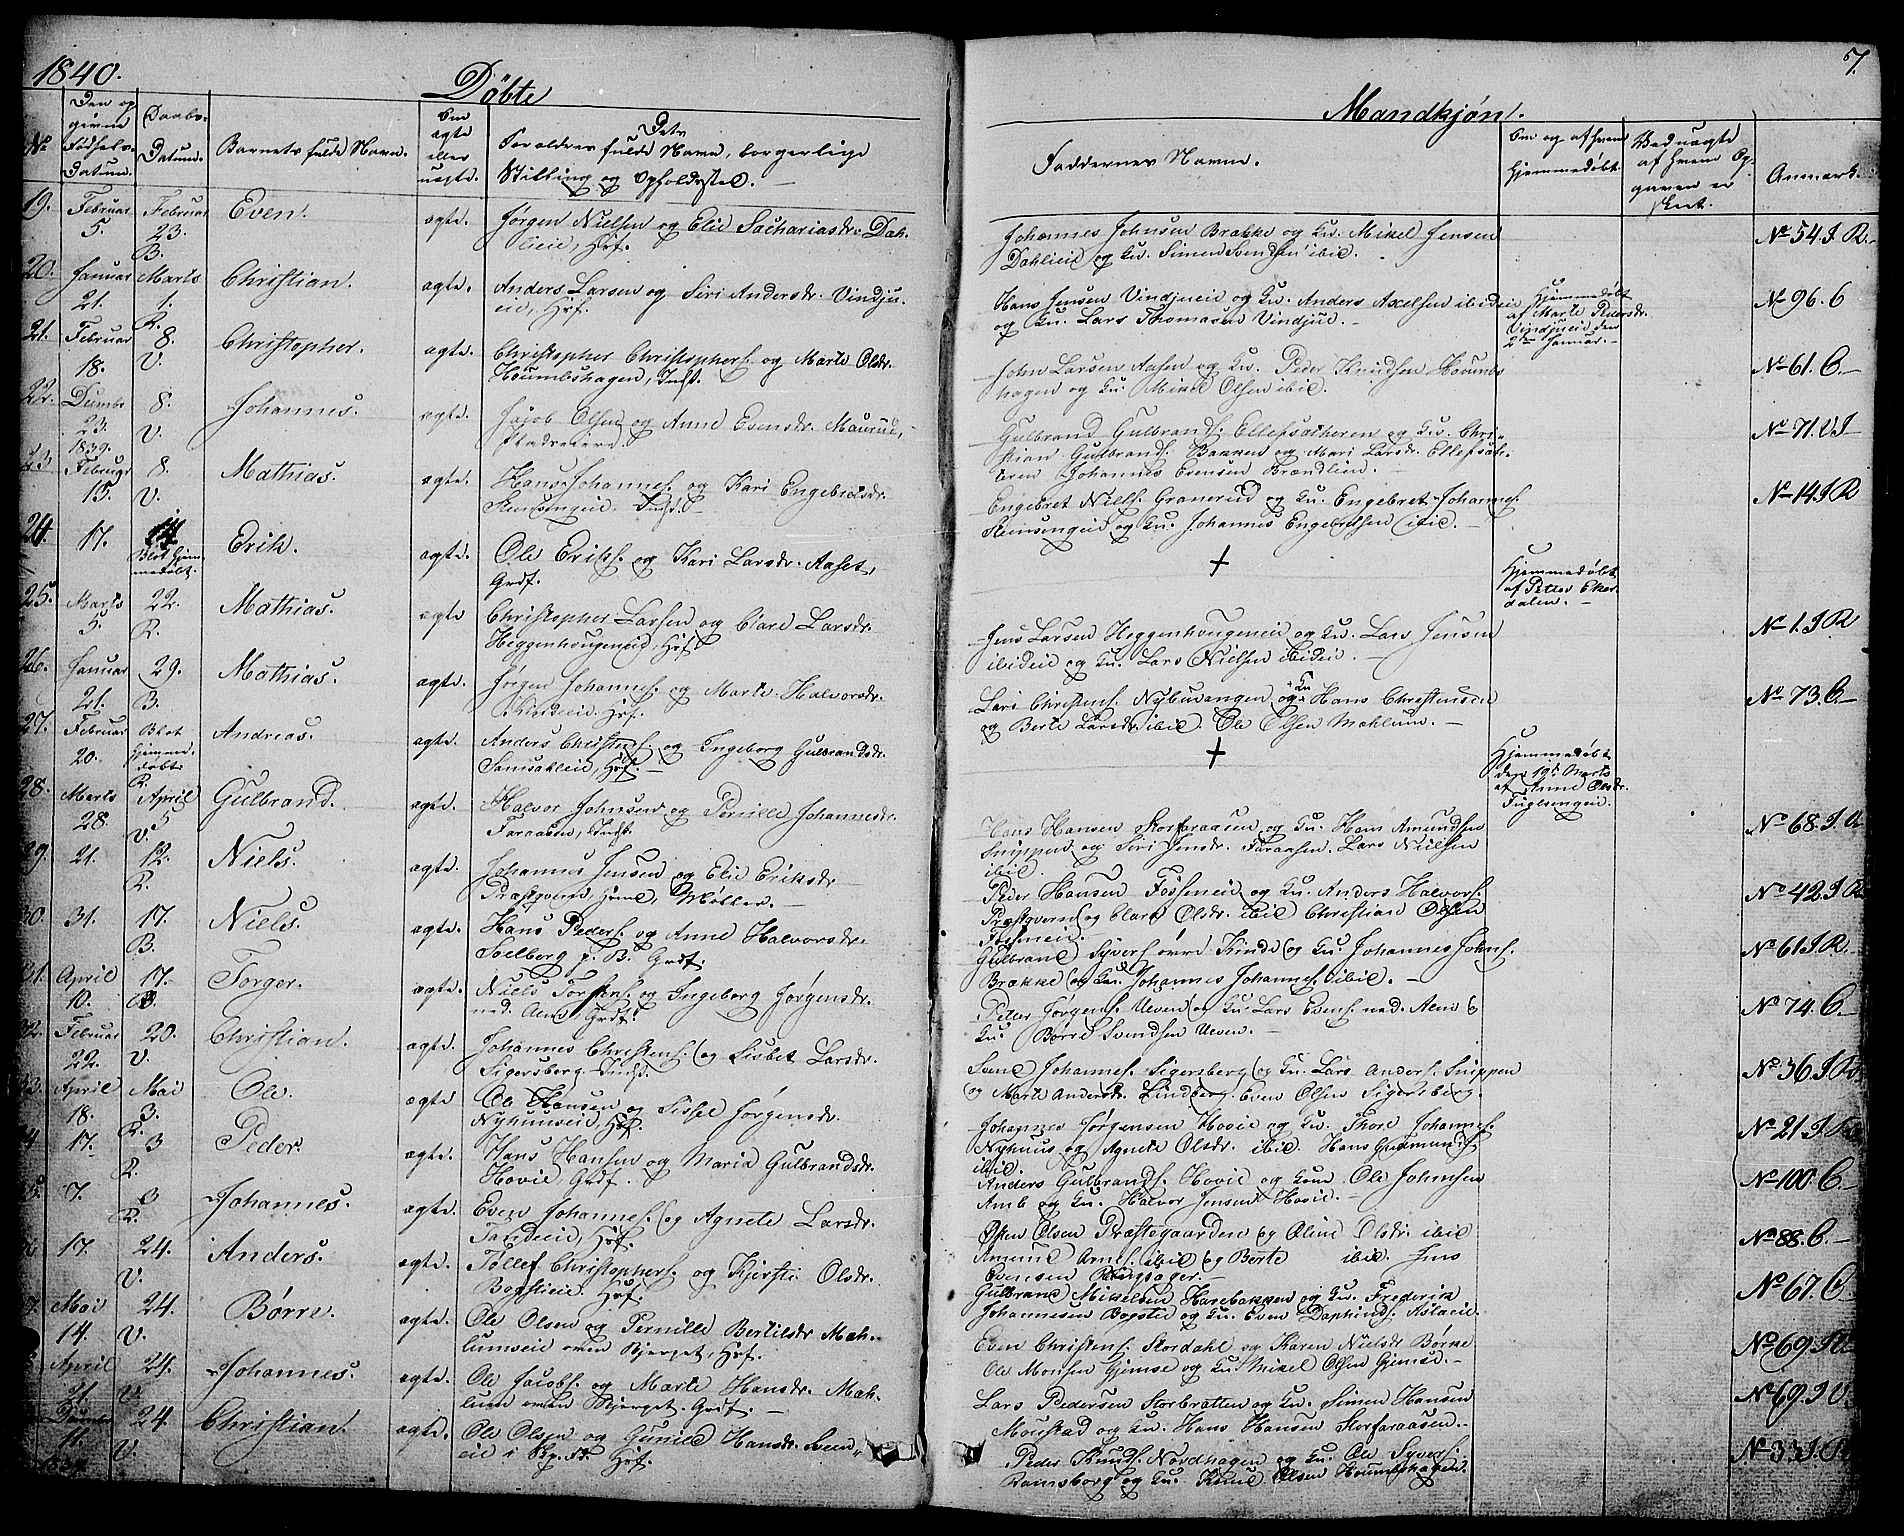 1840.
Döbte
Mandkjøn.
7.
No
Den op
givne
Fødsels-
Datum.
Daabs-
Datum.
Barnets fulde Navn.
Om
ægte
eller
uægte.
Forældres fulde Navn, borgerlige
Stilling og Opholdssted.
Faddernes Navne.
Om og af hvem
hjemmedøbt
Ved uægte
af hvem Op-
gaven er
skeet.
Anmærk.
19. Februar Februar Even. ægte. Jørgen Nielsen og Elie Sachariasdr. Dah-
5. 23. lieie, Hsf.
B.
Johannes Johnsen Brække og Gu. Mikel Jensen
Dahlieie og Gu. Simen Svendsen ibid.
No 54. I R.
20. Januar Marts Christian. ægte. Anders Larsen og Siri Andersdr. Vindju-
21. 1. eie, Hsf.
R.
Hans Jensen Vindjueie og Gu. Anders Axelsen ibideie
og Gu. Lars Thomasen Vindjue.
Hjemmedøbt
af Marte Pedersdr.
Vindjueie den
2den Januar.
No 96. C
21. Februar 8. Christopher. ægte. Christopher Christophers. og Marte Olsdr.
18. V. Houmbshagen, Indst.
John Larsen Aasen og Gu. Peder Knudsen Houmbs
hagen og Gu. Mikel Olsen ibid.
No 61. C.
22. Decembr 8. Johannes. ægte. Jacob Olsen og Anne Evensdr. Maurud,
23. V.
1839.
Gulbrand Gulbrands. Ellefsæteren og Gu. Chri-
stian Gulbrands. Bakken og Mari Larsdr. Ellefsæt-
eren Johannes Evensen Brændlien.
No 71. V I
23. Februar 8. Mathias. ægte. Hans Johannes. og Kari Engebretsdr.
15. V. Steensengeie. Indst.
Engebret Niels. Granerud og Gu. Engebret Johannes.
Steensengeie og Gu. Johannes Engebretsen ibid.
No 14. I R
24. 17. Blot hjem-
medøbt. Erik. ægte. Ole Eriks. og Kari Larsdr. Aaset,
Grdf.
+
Hjemmedøbt
af Petter Eker-
dalen.
25. Marts 22. Mathias. ægte Christopher Larsen og Clare Larsdr.
5. R. Heggenhougeneie, Hsf.
Jens Larsen Heggenhougeneie og Gu. Lars Jensen
ibideie og Gu. Lars Nielsen ibideie.
No 1. I R
26. Januar 29. Mathias. ægte. Jørgen Johannes. og Marte Halvorsdr.
21. B.
Lars Christens. Nybusvangen og Gu. Hans Christensen
og Berte Larsdr. ibid. Ole Olsen Mahlum.
No 73. C.
27. Februar Blot Andreas. ægte. Anders Christens. og Ingeborg Gulbrandsdr.
20. hjemme-
døbt
R.
+
Hjemmedøbt
den 19de Marts
af Anne Olsdr.
Fuglsengeie.
28. Marts April Gulbrand. ægte. Halvor Johnsen og Pernille Johannesdr.
28. 5 Faraasen, Indst.
V.
Hans Hansen Storfaraasen og Gu. Hans Amundsen
Snippen og Siri Jensdr. Faraasen. Lars Nielsen
ibid.
No 68. I.
29. 21. 12. Niels. ægte. Johannes Jensen og Elie Eriksdr.
R. Præstqvern, Huus, Møller.
Peder Hansen Fossneie og Gu. Anders Halvors.
Præstqvern og Clare Olsdr. ibid Christian Olsen
Fossneie.
No 42. I R
30. 31. 17. Niels. ægte. Hans Peders. og Anne Halvorsdr.
B. Solberg p. B. Grdf.
Gulbrand Syvers. øvre Kinde og Gu. Johannes Johns.
Brække og Gu. Johannes Johannes. ibid.
No 61 I R.
31. April 17. Torger. ægte. Niels Torgers. og Ingeborg Jørgensdr.
10. B ned. Alm, Grdf.
Peder Jørgens. Ueven og Gu. Lars Evens. ned. Alm &
Gu. Børre Svendsen Ueven.
No 74. C.
32. Februar 20. Christian. ægte. Johannes Christens. og Lisbet Larsdr.
22. V. Sigersberg Indst.
Svend Johannes. Sigersberg og Gu. Lars Anders. Snippen
og Marte Andersdr. Lindberg. Even Olsen Sigersberg.
No 36. I R
33. April Mai Ole. ægte Ole Hansen og Sissel Jørgensdr.
18. 3. Nyhuuseie, Hsf.
R.
Johannes Jørgensen Hovie og Gu. Thore Johannes.
Nyhuus og Agnete Olsdr. ibid. Hans Gudmunds.
ibid.
No 21. I
34 17. 3 Peder. ægte. Hans Hansen og Maria Gulbrandsdr.
R. Hovie, Grdf.
Anders Gulbrands. Hovie og Gu. Ole Johnsen
Amb og Gu. Halvor Jensen Hovie.
No 100. C.
35. 7. 3 Johannes. ægte. Even Johannes. og Agnete Larsdr.
R. Tandeeie, Hsf.
Østen Olsen Præstegaarden og Oline Olsdr. ibid
Amund Arnes. ibid og Berte ibid. Jens
Evensen Ringsager.
No 88. C.
36 17. 24. Anders. ægte. Tollef Christophers. og Kjersti Olsdr.
V. Bogstieie, Hsf.
Gulbrand Mikelsen Harebakken og Gu. Frederik
Johannesen Bogstie og Gu. Even Daphinds. Aslaeie.
No 67. C.
37. Mai 24. Børre. ægte. Ole Olsen og Pernille Bertilsdr. Mah-
14. V. lumseie oven Bjerget, Hsf.
Even Christens. Stordahl og Karen Nielsdr. Børke
Ole Monsen Gjemse og Gu. Mikel Olsen Gjemse.
No 69. I
April 24. Johannes. ægte. Ole Jacobs. og Marte Hansdr. Mah-
21. V. lum oven Bjerget. Grdf.
Lars Pedersen Storbratten og Gu. Simen Hansen
Moustad og Gu. Hans Hansen Storfaraasen.
No 69. I V.
Decembr 24. Christian. ægte. Ole Olsen og Gunild Hansdr. Sveen-
11. V. eie i Hsf.
1839
Peder Knuds. Nordhagen og Gu. Ole Syvers.
Ramsborg og Gu. Knud Olsen Houmbshagen.
No 33. I